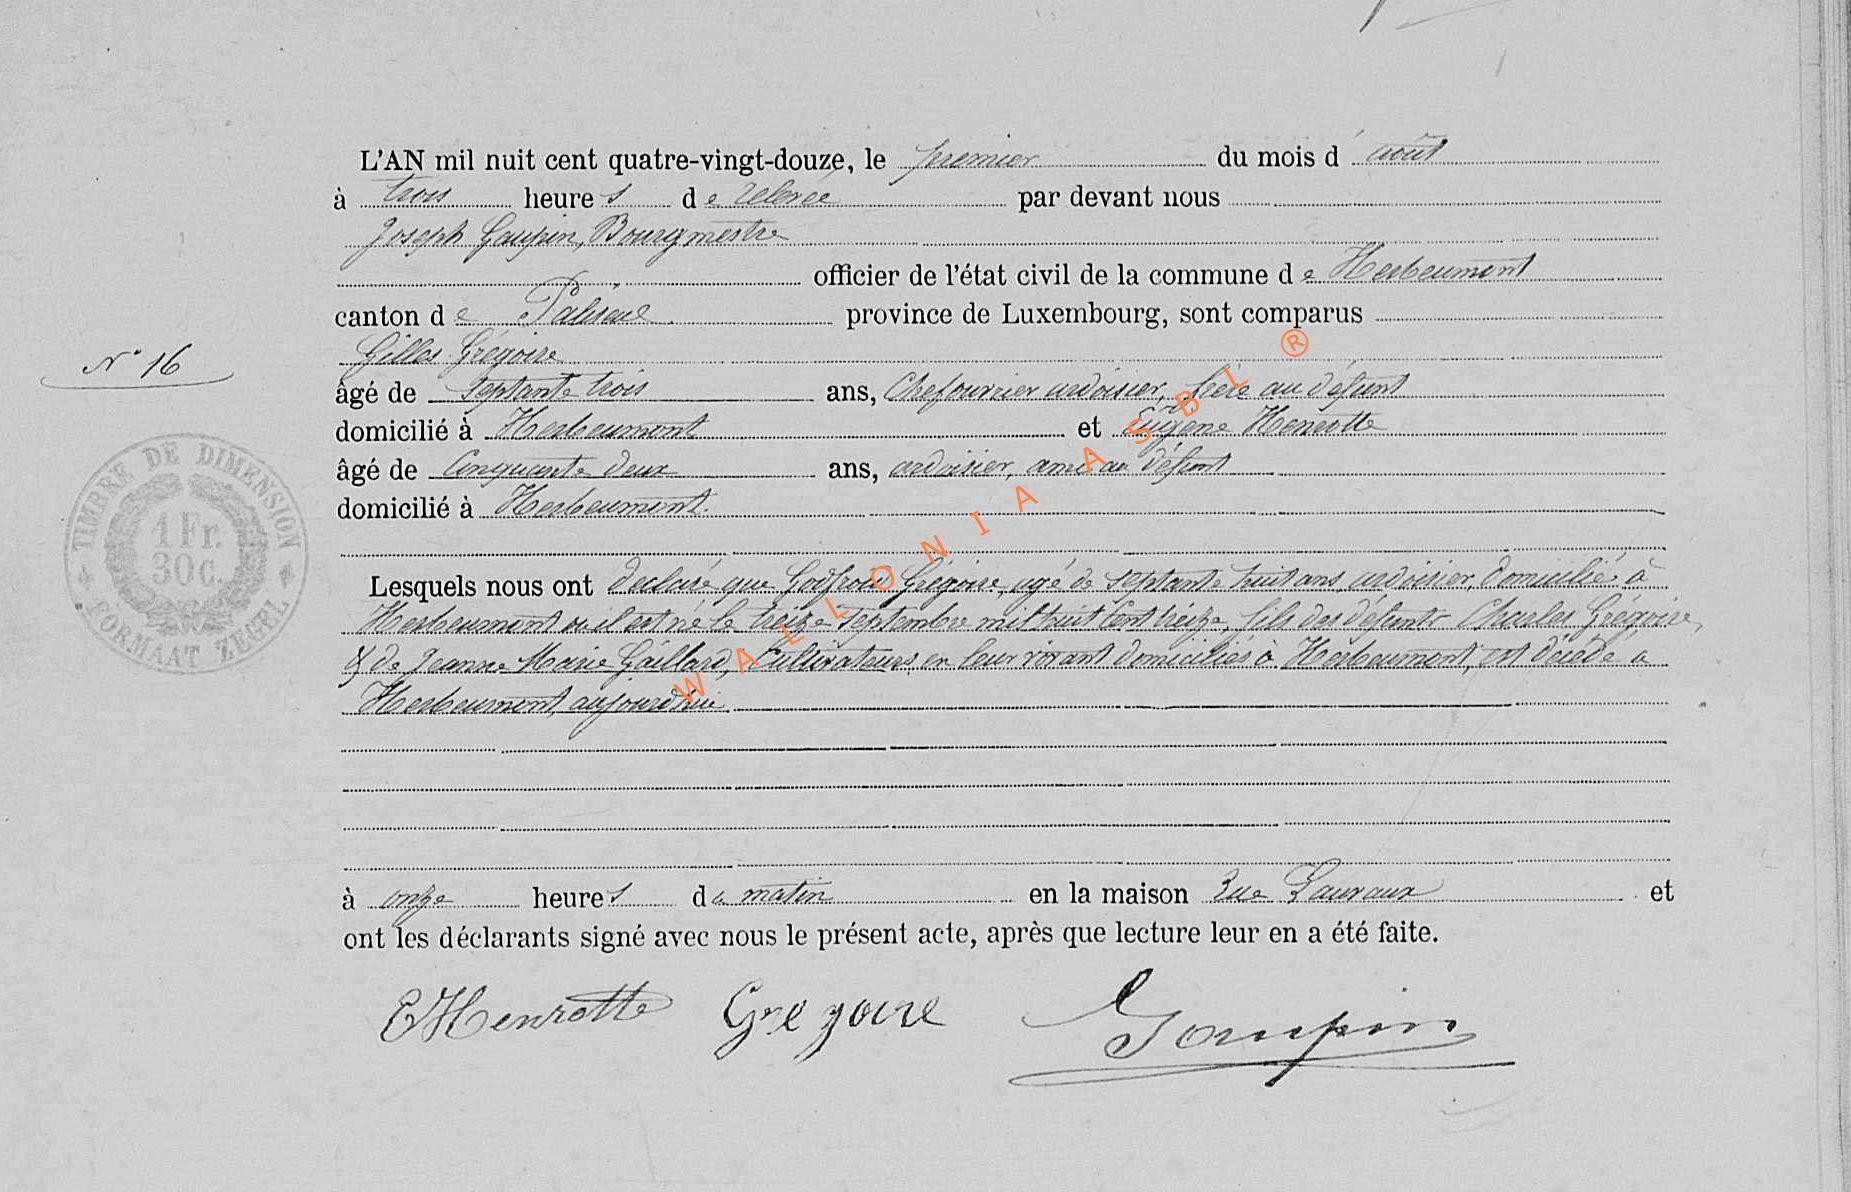 L'AN mil huit cent quatre-vingt-douze, le premier du mois d'août
à trois heures de relevée par devant nous
Joseph Goupin, Bourgmestre
officier de l'état civil de la commune de Herbeumont
canton de Paliseul province de Luxembourg, sont comparus
Gilles Grégoire
N° 16
âgé de septante trois ans, Chefouvrier ardoisier, frère au défunt
domicilié à Herbeumont et Eugène Henrotte
âgé de Cinquante deux ans, ardoisier, ami au défunt
domicilié à Herbeumont.
TIMBRE DE DIMENSION
1 Fr.
30 c.
FORMAAT ZEGEL
Lesquels nous ont déclaré que Godfroid Grégoire, agé de septante huit ans, ardoisier, domicilié à
Herbeumont où il est né le treize septembre mil huit cent treize, fils des défunts Charles Grégoire,
& de Jeanne Marie Gaillard, Cultivateurs, en leur vivant domiciliés à Herbeumont, est décédé à
Herbeumont, aujourd'hui
à onze heures du matin en la maison Rue Lauvaux et
ont les déclarants signé avec nous le présent acte, après que lecture leur en a été faite.
EHenrotte Gregoire Goupin
WALLONIA ASBL ®